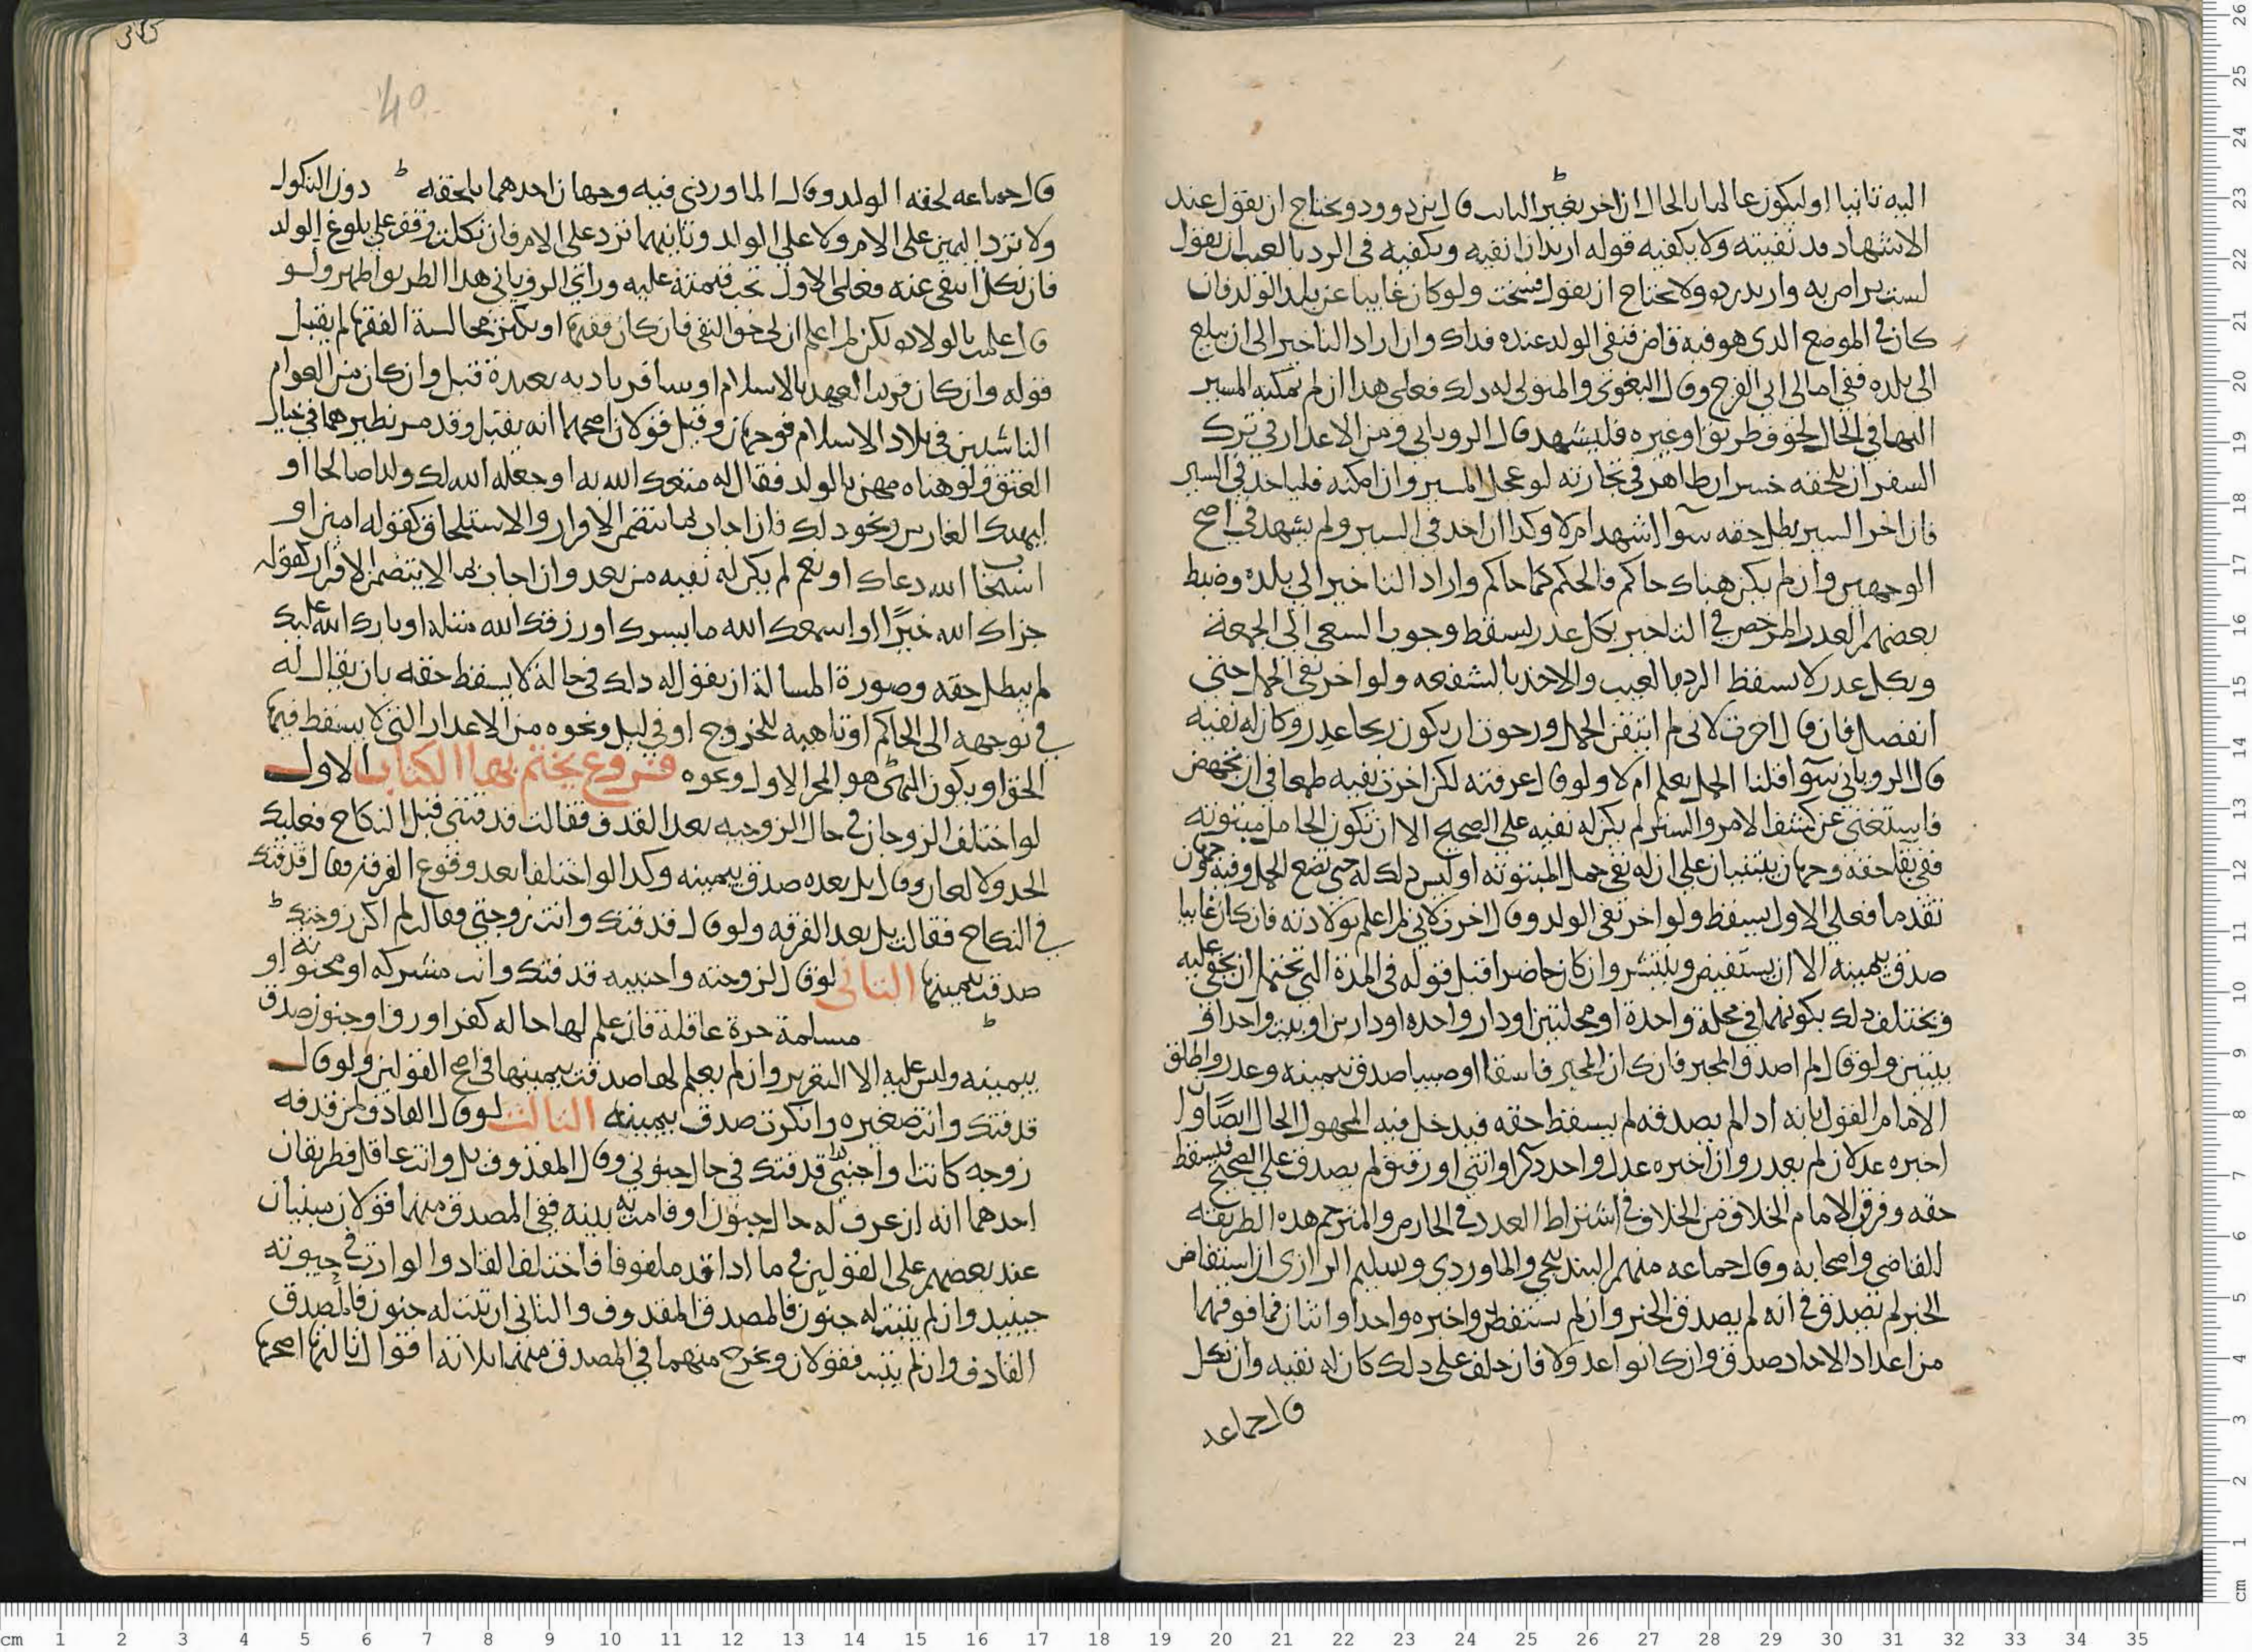 اليه ثانيا او ليكون عالما بالحال ان اخر بغير الباب قال ابن دوود ويحتاج ان يقول عند
الاشهاد قد نفيته ولا يكفيه قوله اريد ان انفيه ويكفيه في الرد بالعيب ان يقول
لست براض به واريد رده ولا يحتاج ان يقول فسخت ولو كان غايبا عن بلد الولد فان
كان في الموضع الذي هو فيه قاض فنفى الولد عنده فذاك وان اراد التاخير الى ان يبلغ
الى بلده ففي امالي ابي الفرج وقال البغوي والمتولي له ذلك فعلى هذا ان لم يمكنه المسير
اليها في الحال لخوف طريق او غيره فليشهد قال الروياني ومن الاعذار في ترك
السفر ان يلحقه خسران ظاهر في تجارته لو عجل المسير وان امكنه فلياخذ في السير
فان اخر السير بطل حقه سوا اشهد ام لا وكذا ان اخذ في السير ولم يشهد في اصح
الوجهين وان لم يكن هناك حاكم فالحكم كما حاكم واراد التاخير الى بلده وضبط
بعضهم العذر المرخص في التاخير بكل عذر يسقط وجوب السعي الى الجمعة
وبكل عذر لا يسقط الرد بالعيب والاخذ بالشفعه ولو اخر نفي الحمل حتى
انفصل فان قال اخرت لاني لم اتيقن الحمل ورجوت ان يكون ريحا عذر وكان له نفيه
قال الروياني سوا قلنا الحمل يعلم ام لا ولو قال عرفته لكن اخرت نفيه طمعا في ان تجهض
فاستغني عن كشف الامر والستر لم يكن له نفيه على الصحيح الا ان تكون الحامل مبتوته
ففي بقا حقه وجهان يبتنيان على ان له نفي حمل المبتوته او ليس ذلك له حتى تضع الحمل وفيه وجهان
تقدما فعلى الاول يسقط ولو اخر نفي الولد وقال اخرت لاني لم اعلم بولادته فان كان غايبا
صدق بيمينه الا ان يستفيض وينتشر وان كان حاضرا قبل قوله في المدة التي تحتمل ان يخفى عليه
ويختلف ذلك بكونهما في محلة واحدة او محلتين او دار واحده او دارين او بيت واحد او
بيتين ولو قال لم اصدق المخبر فان كان المخبر فاسقا او صبيا صدق بيمينه وعذر واطلق
الامام القول بانه اذا لم يصدقه لم يسقط حقه فيدخل فيه المجهول الحال ايضا وان
اخبره عدلان لم يعذر وان اخبره عدل واحد ذكر او انثى او رقيق لم يصدق على الصحيح فيسقط
حقه وفرق الامام الخلاف من الخلاف في اشتراط العدد في الخارص والمترجم هذه الطريقه
للقاضي واصحابه وقال جماعه منهم البندنيجي والماوردي وسليم الرازي ان استفاض
الخبر لم يصدق في انه لم يصدق الخبر وان لم يستفض واخبره واحد او اثنان فما فوقهما
من اعداد الاحاد صدق وان كانوا عدولا فان حلف على ذلك كان له نفيه وان نكل
قال جماعه
قال جماعه لحقه الولد وقال الماوردي فيه وجهان احدهما يلحقه دون النكول
ولا ترد اليمين على الام ولا على الولد وثانيهما ترد على الام فان نكلت وقف على بلوغ الولد
فان نكل انتفى عنه فعلى الاول تجب قيمته عليه وراي الروياني هذا الطريق اظهر ولو
قال علمت بالولاده لكن لم اعلم ان لي حق النفي فان كان فقيها او يكثر مجالسة الفقها لم يقبل
قوله وان كان قريب العهد بالاسلام او سافر بادية بعيدة قبل وان كان من العوام
الناشيين في بلاد الاسلام فوجهان وقيل قولان اصحهما انه يقبل وقد مر نظيرهما في خيار
العتق ولو هناه مهن بالولد فقال له متعك الله به او جعله الله لك ولدا صالحا او
ليهنك الفارس ونحو ذلك فان اجاب بما يتضمن الاقرار والاستلحاق كقوله امين او
استجاب الله دعاك او نعم لم يكن له نفيه من بعد وان اجاب بما لا يتضمن الاقرار كقوله
جزاك الله خيرًا او اسمعك الله ما يسرك او رزقك الله مثله او بارك الله عليك
لم يبطل حقه وصورة المسالة ان يقول له ذلك في حالة لا يسقط حقه بان يقال له
في توجهه الى الحاكم او تاهبه للخروج او في ليل ونحوه من الاعذار التي لا يسقط فيها
الحق او يكون المهنى هو المخبر الاول ونحوه فروع يختم بها الكتاب الاول
لو اختلف الزوجان في حال الزوجيه بعد القذف فقالت قذفتني قبل النكاح فعليك
الحد ولا لعان وقال بل بعده صدق بيمينه وكذا لو اختلفا بعد وقوع الفرقه فقال قذفتك
في النكاح فقالت بل بعد الفرقه ولو قال قذفتك وانت زوجتي وقالت لم اكن زوجتك
صدقت بيمينها الثاني لو قال لزوجته واجنبيه قذفتك وانت مشركه او مجنونه او
مسلمة حرة عاقلة فان علم لها حاله كفر او رق او جنون صدق
بيمينه وليس عليه الا التعزير وان لم يعلم لها صدقت بيمينها في اصح القولين ولو قال
قذفتك وانت صغيره وانكرت صدق بيمينه الثالث لو قال القاذف لمن قذفه
زوجه كانت او اجنبي قذفتك في حال جنوني وقال المقذوف بل وانت عاقل فطريقان
احدهما انه ان عرف له حال جنون او قامت به بينه ففي المصدق منهما قولان مبنيان
عند بعضهم على القولين في ما اذا قد ملفوفا فاختلف القاد والوارث في حيوته
حينيذ وان لم يثبت له جنون فالمصدق المقذوف والثاني ان ثبت له جنون فالمصدق
القاذف وان لم يثبت فقولان ويخرج منهما في المصدق منهما ثلاثة اقوال ثالثها اصحها